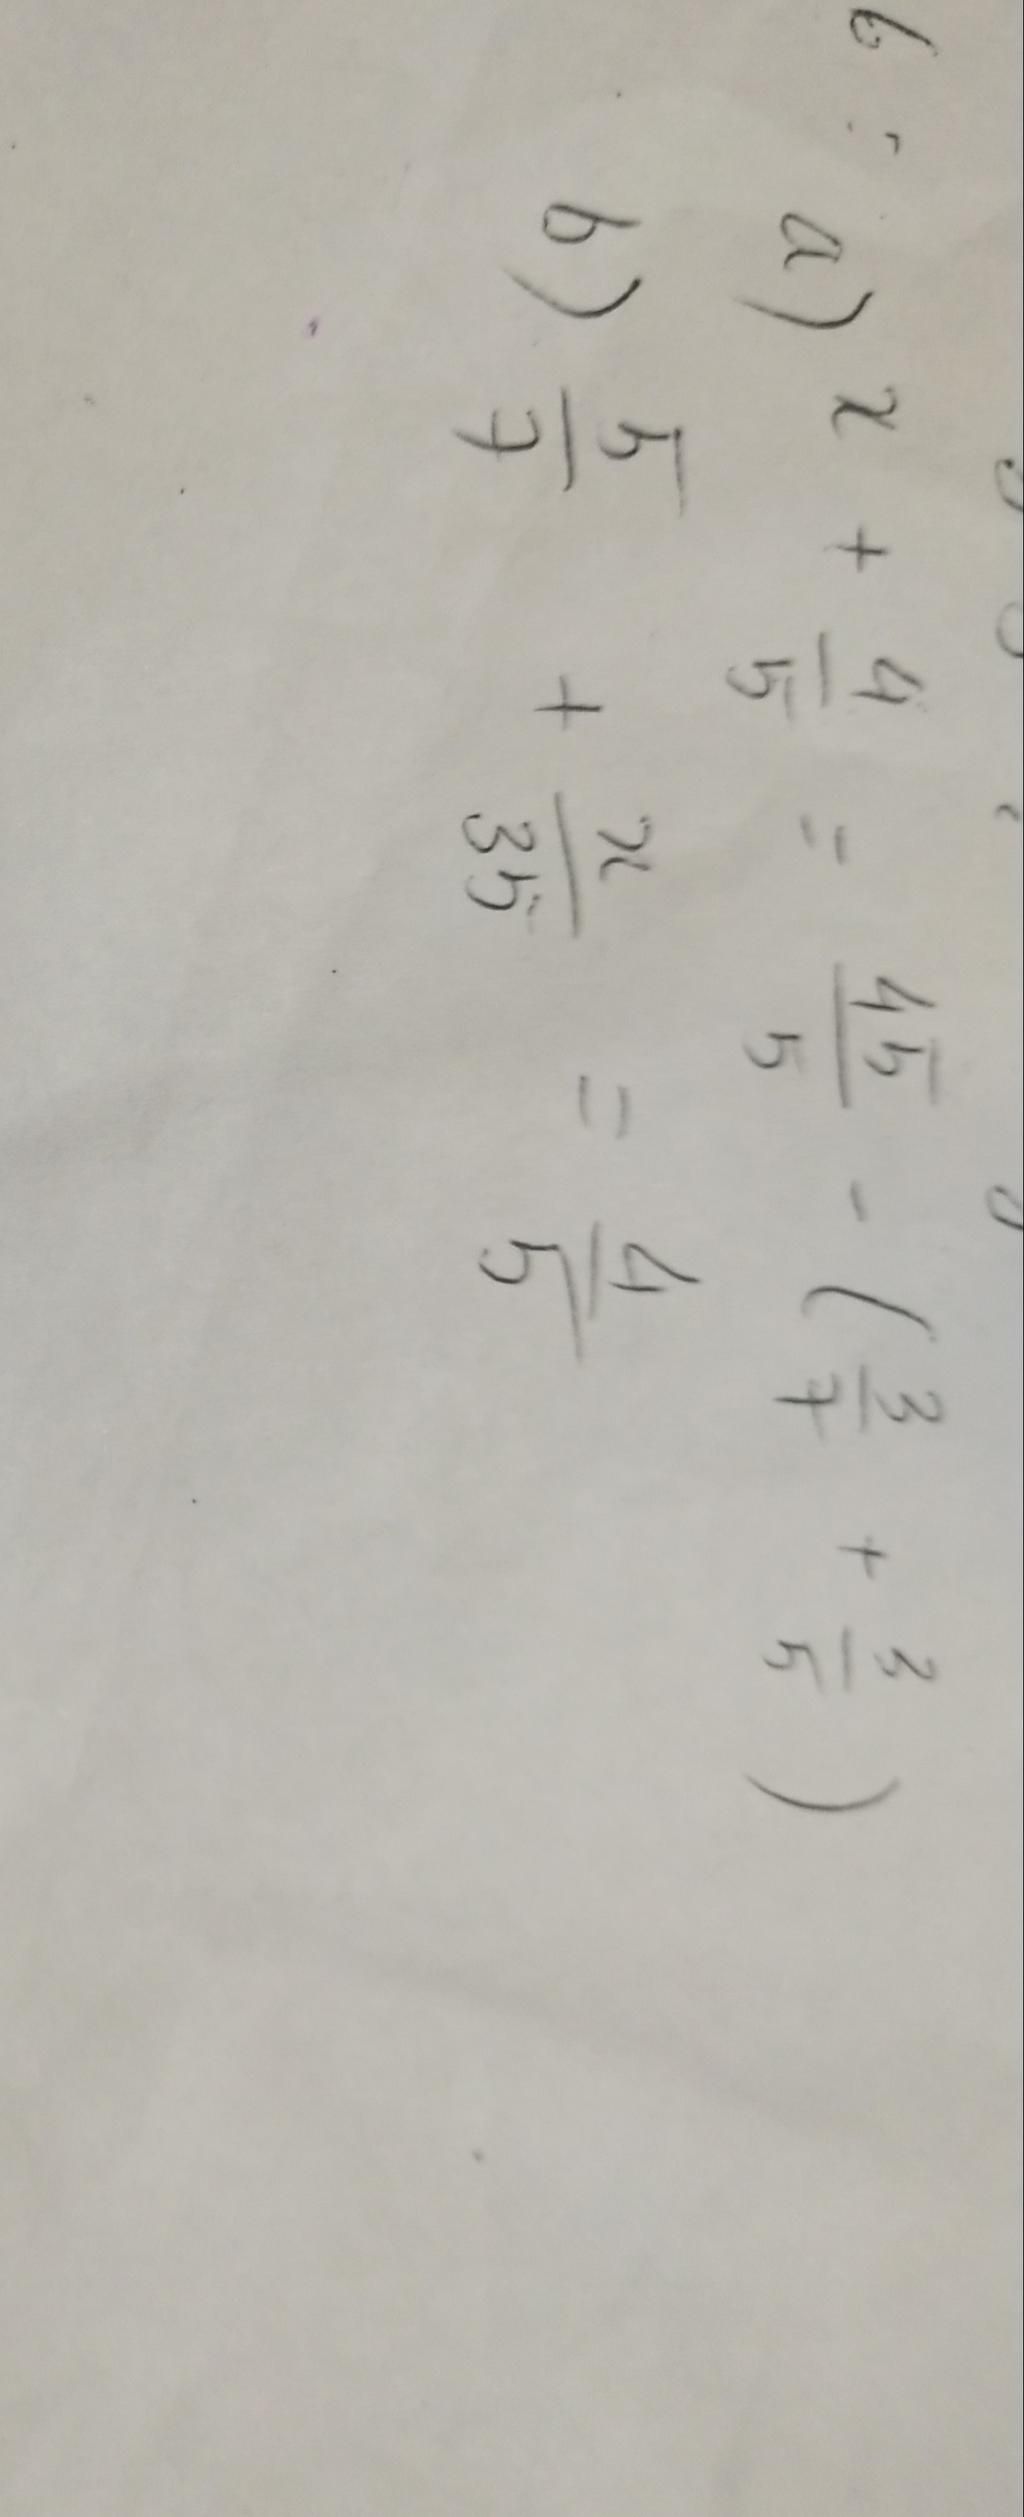 6 : a) x + 4/5 = 45/5 - ( 3/7 + 3/5 )
b) 5/7 + x/35 = 4/5